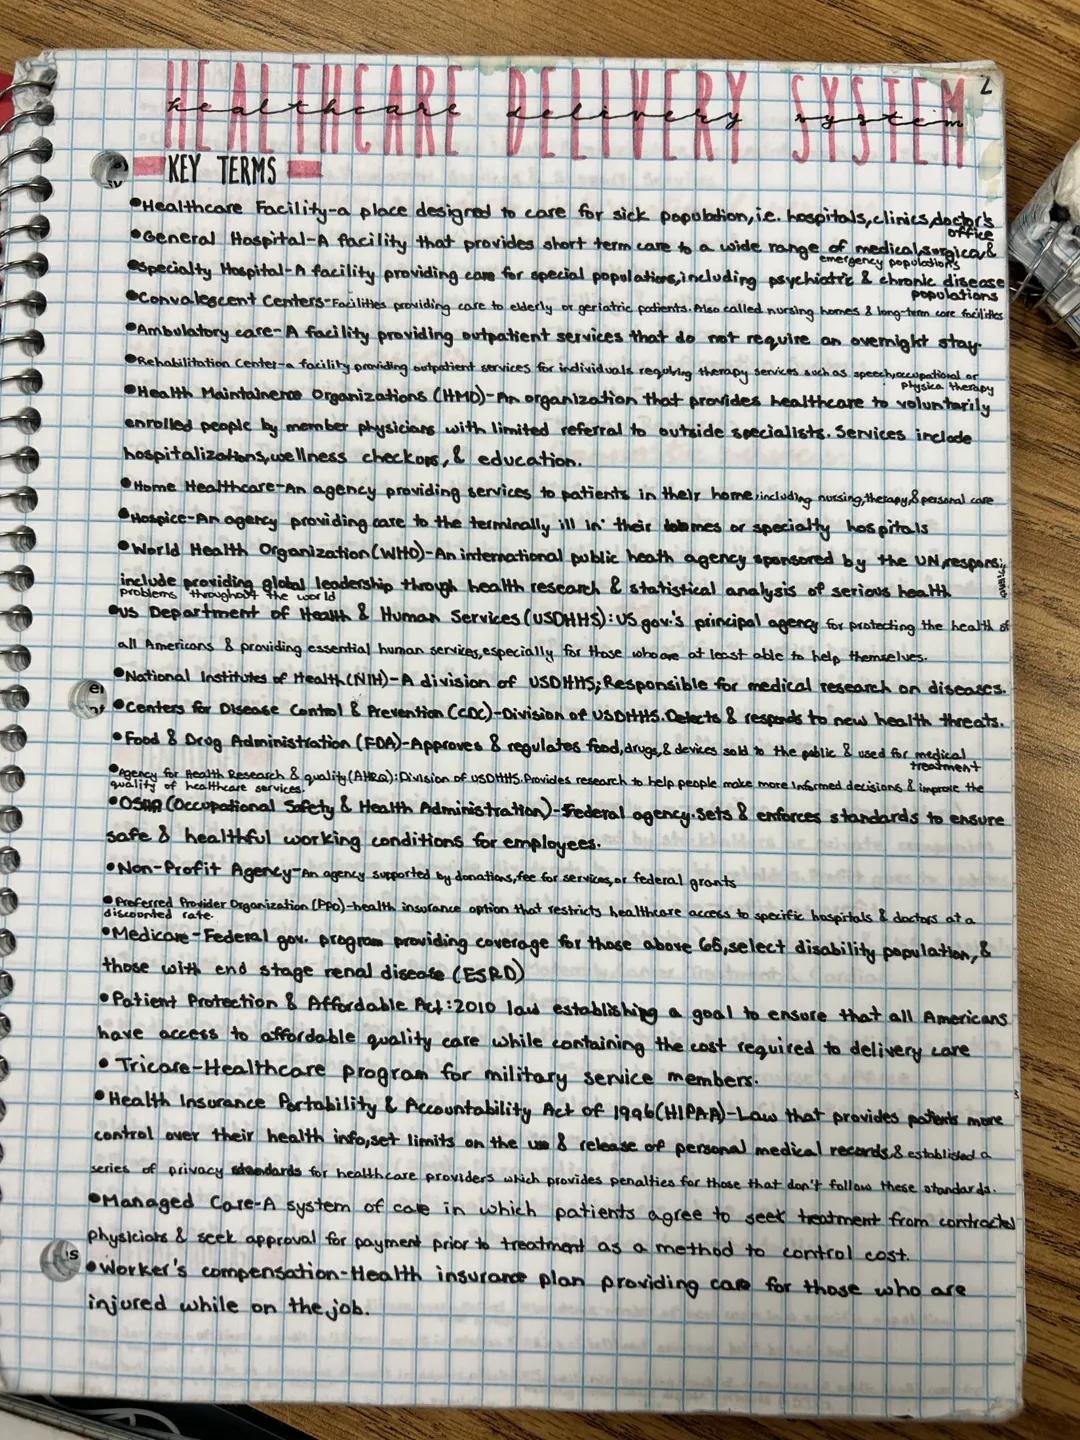 HEALTHCARE DELIVERY SYSTEM
healthcare delivery system
2
KEY TERMS
•Healthcare Facility-a place designed to care for sick population, i.e. hospitals, clinics, doctor's
office
•General Hospital-A facility that provides short term care to a wide range of medical, surgical, &
emergency populations
•Specialty Hospital-A facility providing care for special populations, including psychiatric & chronic disease
populations
•Convalescent Centers-Facilities providing care to elderly or geriatric patients. Also called nursing homes & long-term care facilities
•Ambulatory care-A facility providing outpatient services that do not require an overnight stay.
•Rehabilitation Center-a facility providing outpatient services for individuals requiring therapy services such as speech, occupational or
physica therapy
•Health Maintainence Organizations (HMO)-An organization that provides healthcare to voluntarily
enrolled people by member physicians with limited referral to outside specialists. Services include
hospitalizations, wellness checkups, & education.
•Home Healthcare-An agency providing services to patients in their home, including nursing, therapy, & personal care
•Hospice-An agency providing care to the terminally ill in their homes or specialty hospitals
•World Health Organization (WHO)-An international public heath agency sponsored by the UN, respons
include providing global leadership through health research & statistical analysis of serious health
problems throughout the world
•US Department of Health & Human Services (USDHHS): US gov.'s principal agency for protecting the health of
all Americans & providing essential human services, especially for those who are at least able to help themselves.
•National Institutes of Health (NIH)-A division of USDHHS; Responsible for medical research on diseases.
•Centers for Disease Control & Prevention (CDC)-Division of USDHHS. Detects & responds to new health threats.
•Food & Drug Administration (FDA)-Approves & regulates food, drugs, & devices sold to the public & used for medical
treatment
•Agency for Health Research & quality (AHRQ): Division of USDHHS. Provides research to help people make more informed decisions & improve the
quality of healthcare services.
•OSHA (Occupational Safety & Health Administration)-Federal agency. Sets & enforces standards to ensure
safe & healthful working conditions for employees.
•Non-Profit Agency-An agency supported by donations, fee for services, or federal grants
•Preferred Provider Organization (PPO)-health insurance option that restricts healthcare access to specific hospitals & doctors at a
discounted rate.
•Medicare-Federal gov. program providing coverage for those above 65, select disability population, &
those with end stage renal disease (ESRD)
•Patient Protection & Affordable Act: 2010 law establishing a goal to ensure that all Americans
have access to affordable quality care while containing the cost required to delivery care
•Tricare-Healthcare program for military service members.
•Health Insurance Portability & Accountability Act of 1996 (HIPAA)-Law that provides patients more
control over their health info, set limits on the use & release of personal medical records, & established a
series of privacy standards for healthcare providers which provides penalties for those that don't follow these standards.
•Managed Care-A system of care in which patients agree to seek treatment from contracted
physicians & seek approval for payment prior to treatment as a method to control cost.
•Worker's compensation-Health insurance plan providing care for those who are
injured while on the job.